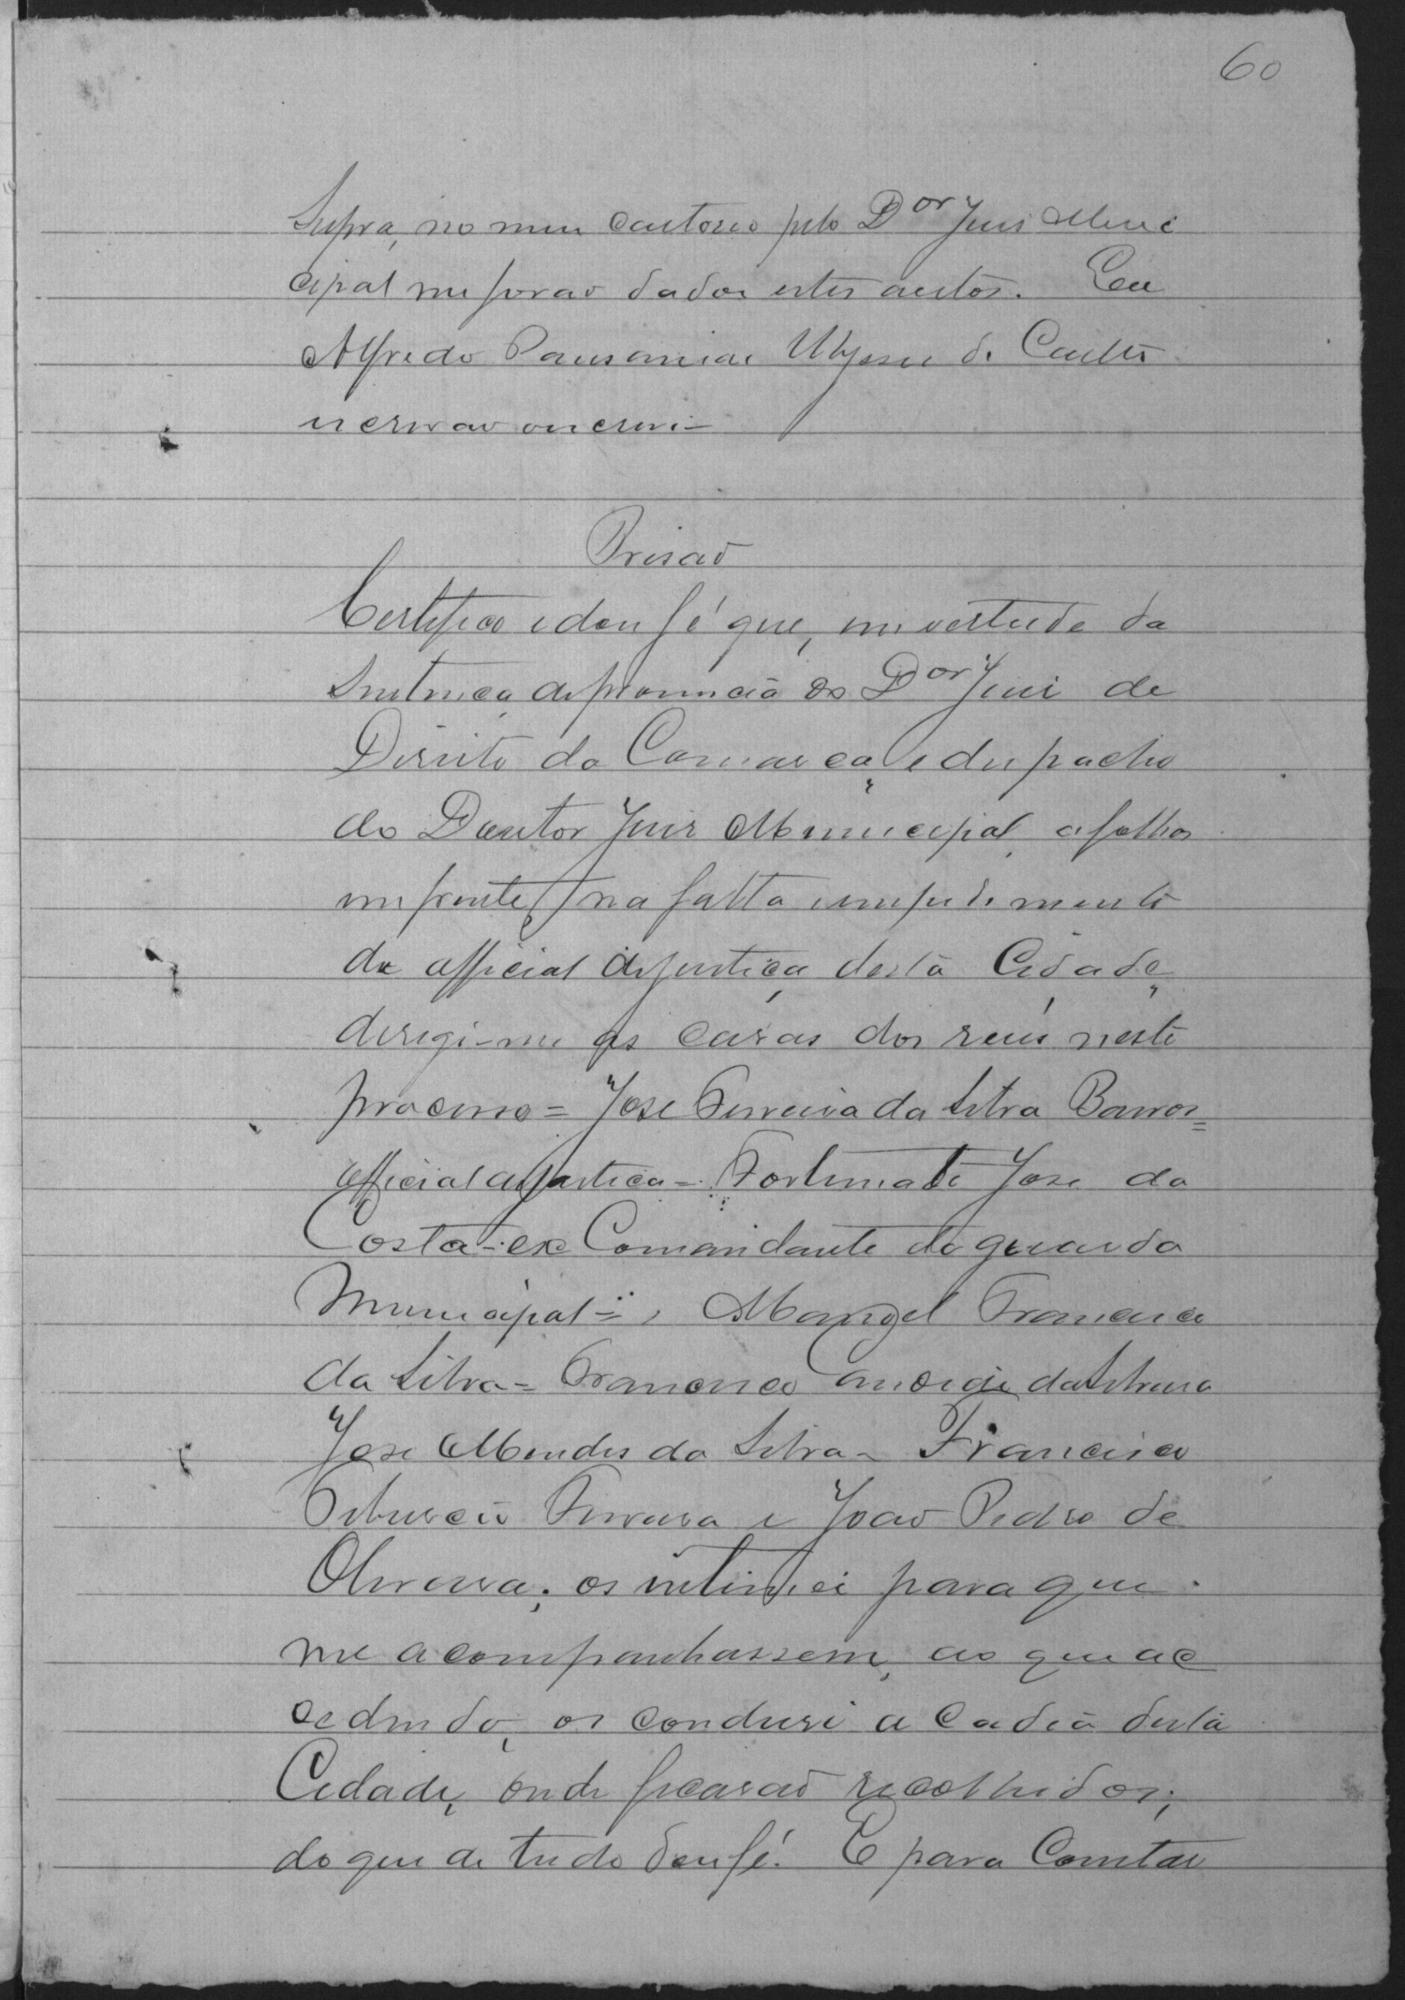 60
Supra, no meu cartorio pelo Dor Juis Muni
cipal me forão dados estes autos. Eu
Alfredo Pausanias Ulysses de Couto
escrivão que escrevi—
Prisão
Certifico e dou fé que, em vertude da
Sentença de pronuncia do Dor Juis de
Direito da Comarca, e despacho
do Doutor Juis Municipal, a folhas
em frente, na falta empedimento
de official de justiça desta Cidade,
deregi-me as casas dos reus neste
processo = José Ferreira da Silva Barros =
official de justica = Fortunato José da
Costa - ex Comandante da guarda
Municipal =, Manoel Francisco
da Silva = Francisco da Silveira
José Mendes da Silva - Francisco
Teburcio Ferreira e João Pedro de
Oliveira; os intimei para que
me acompanhassem, ao que ac
cedendo, os condusi a cadeia desta
Cidade, onde ficarão recolhidos;
do que de tudo dou fé. E para Constar